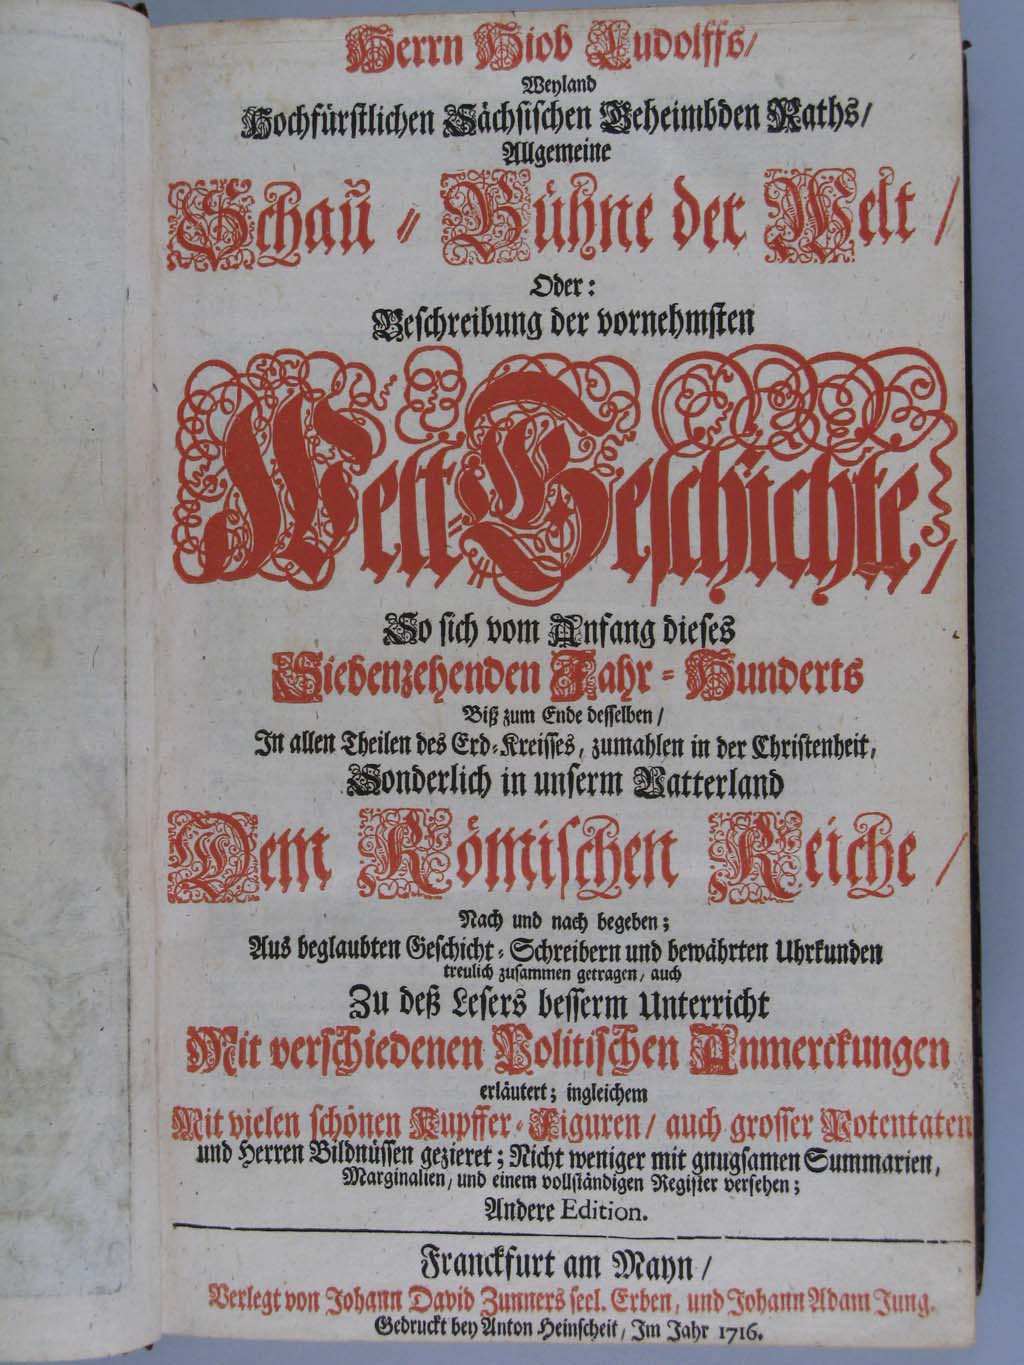 Herrn Hiob Ludolffs/
Weyland
Hochfürstlichen Sächsischen Geheimbden Raths/
Allgemeine
Schaŭ⸗Bühne der Welt/
Oder:
Beschreibung der vornehmsten
Welt⸗Geschichte/
So sich vom Anfang dieses
Siebenzehenden Jahr⸗Hunderts
Biß zum Ende desselben/
In allen Theilen des Erd⸗Kreisses, zumahlen in der Christenheit,
Sonderlich in unserm Vatterland
Dem Römischen Reiche/
Nach und nach begeben;
Aus beglaubten Geschicht⸗Schreibern und bewährten Uhrkunden
treulich zusammen getragen/ auch
Zu deß Lesers besserm Unterricht
Mit verschiedenen Politischen Anmerckungen
erläutert; ingleichem
Mit vielen schönen Kupffer⸗Figuren/ auch grosser Potentaten
und Herren Bildnüssen gezieret; Nicht weniger mit gnugsamen Summarien,
Marginalien/ und einem vollständigen Register versehen;
Andere Edition.
Franckfurt am Mayn/
Verlegt von Johann David Zunners seel. Erben, und Johann Adam Jung.
Gedruckt bey Anton Heinscheit/ Im Jahr 1716.